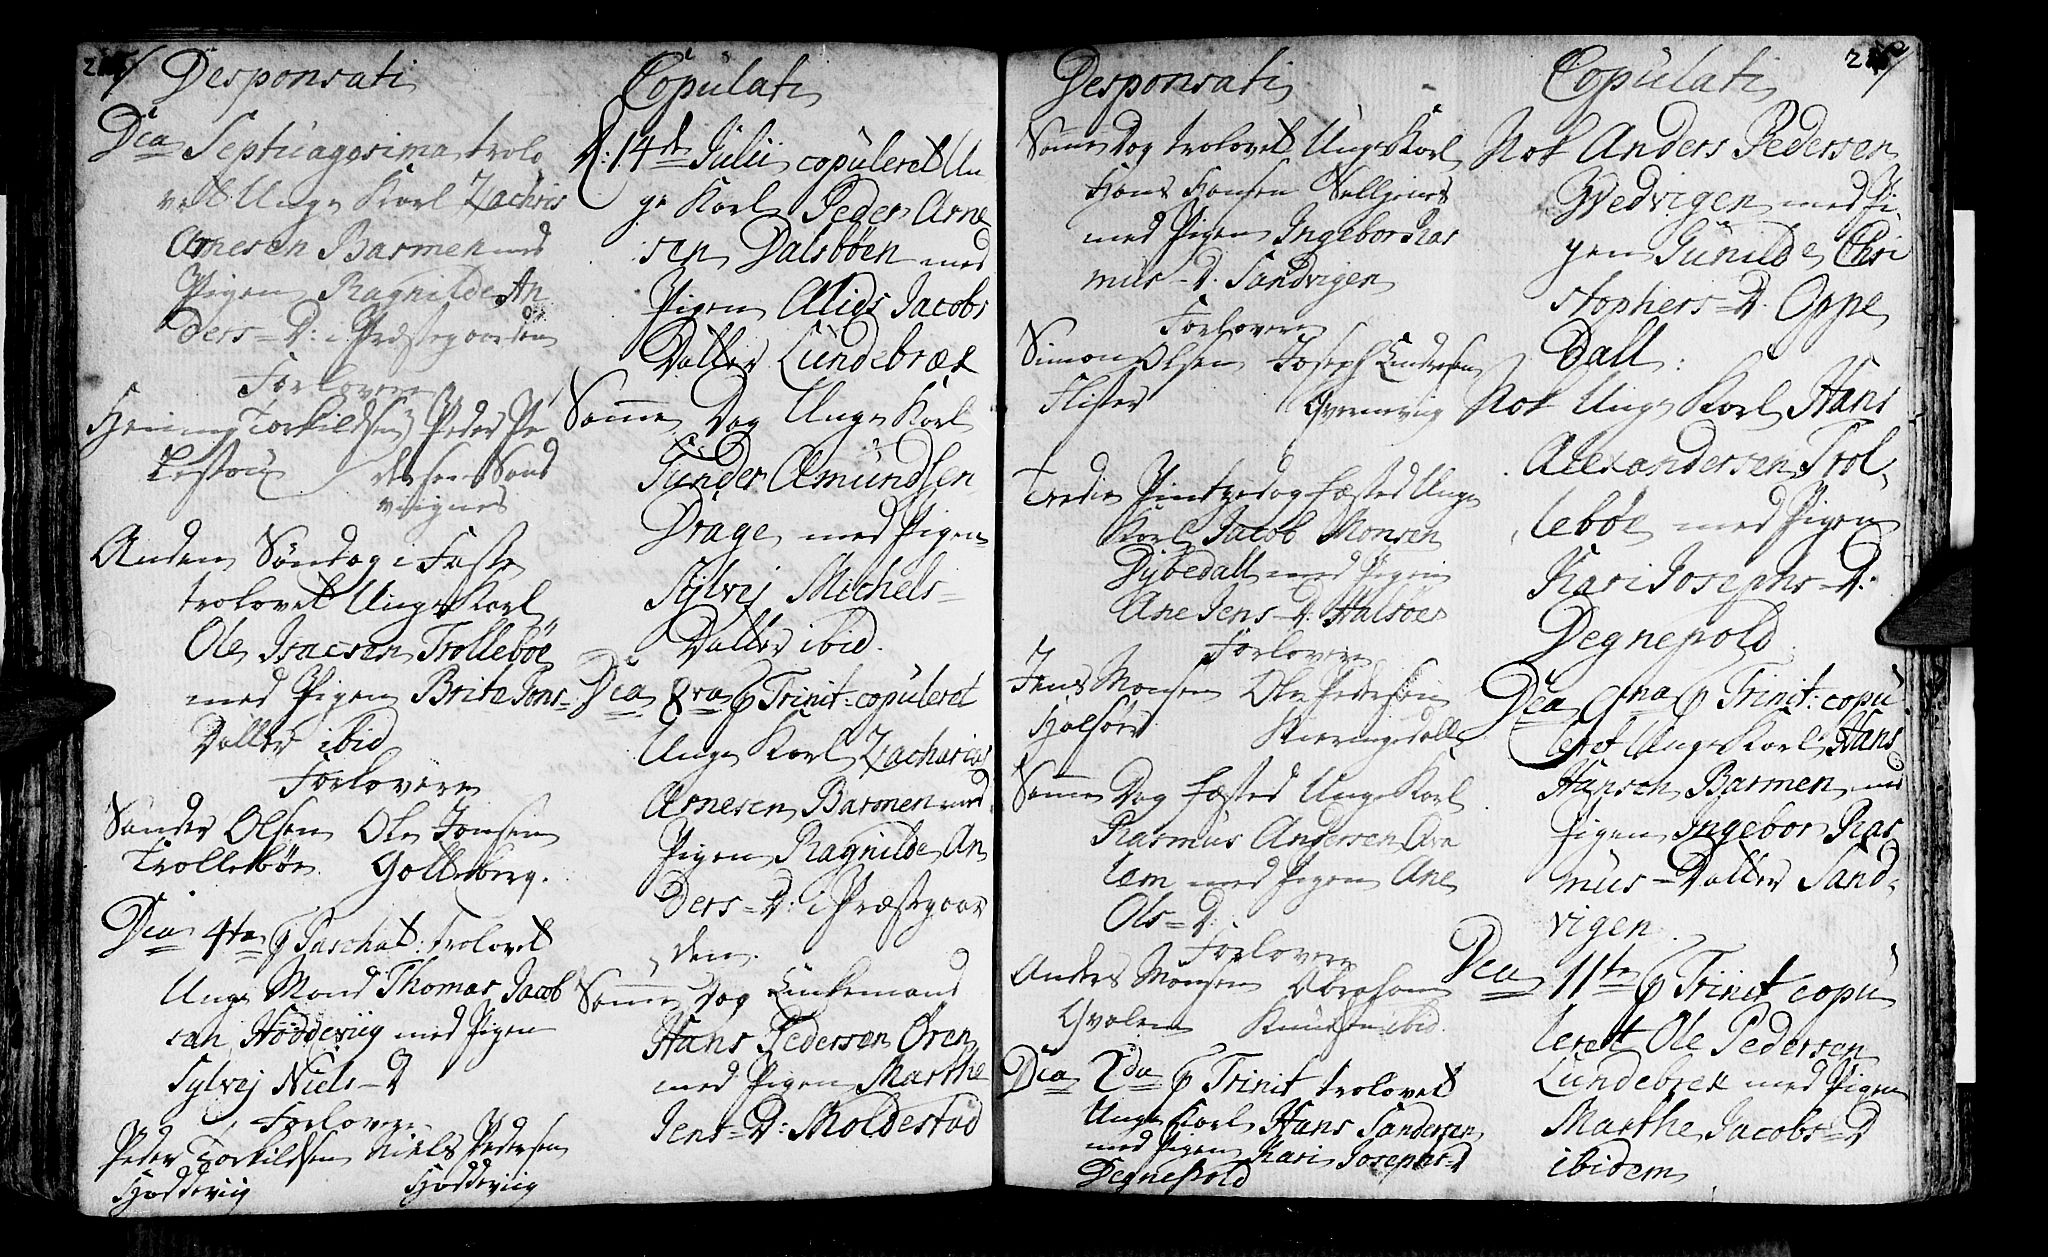 Desponsati
Dca Septuagesima trolo
vet Unge Karl Zachris
Arnesen Barmen med
Pigen Ragnilde An
ders=D: i Præstegaarden
Forlovere
Henning Torkildsen Peder Pe
dersen Sand
viignes
Anden Søndag i Faste
trolovet Unge Karl
Ole Isacsen Trollebøe
med Pigen Brite Jons=
Datter ibid
Forlovere
Sander Olsen Ole Jonsen
Trollebøe Gotteberg.
Dca 4ta p Paschat: trolovet
Unge Mand Thomas Jacob
sen Hoddeviig med Pigen
Sylvej Niels=D
Forlovere
Peder Torkildsen Niels Pedersen
Hoddeviig Hoddeviig
Copulati
D: 14de Julii copuleret Un
ge Karl Peder Arne
sen Dalsbøen med
Pigen Alids Jacobs
Datter Lundebræk
Samme Dag Unge Karl
Gunder Amundsen
Drage med Pigen
Sylvej Michels=
Datter ibid.
Dca 8va p Trinit: copuleret
Unge Karl Zacharias
Arnesen Barmen med
Pigen Ragnilde An
ders=D: i Præstegaar
den.
Samme Dag Enkemand
Hans Pedersen Ören
med Pigen Marthe
Jens=D: Moldestad
Desponsati
Samme Dag trolovet Unge Karl
Hans Hansen
med Pigen Ingebor Ras
mus=D. Sandvigen
Forlovere
Simon Olsen Joseph
Flister
Tredie Pintzedag fæsted Unge
Karl Jacob Monsen
Dybedall med Pigen
Ane Jens=D. Halsøer
Forlovere
Jens Monsen Ole Pedersen
Halsøer Skaringsdall
Samme Dag fæsted Unge Karl
Rasmus Andersen Ara
tem med Pigen Ane
Ols=D:
Forlovere
Anders Monsen Abraham
Qvalen Knudsen ibid.
Dca 2da p Trinit trolovet
Unge Karl Hans Sandersen
med Pigen Kari Josephs=D
Degnepold
Copulati
Nok Anders Pedersen
Hvedvigen med Pi
gen Gunilde Chri
stophers=D. Oppe
Dall:
Nok Unge Karl Hans
Alexandersen Trol
lebøe med Pigen
Kari Josephs=D:
Degnepold
Dca 9na p Trinit: copu
leret Unge Karl Hans
Hansen Barmen med
Pigen Ingebor Ras
mus=Datter Sand=
vigen.
Dca 11te p Trinit copu
leret Ole Pedersen
Lundebrek med Pigen
Marthe Jacobs=D
ibidem